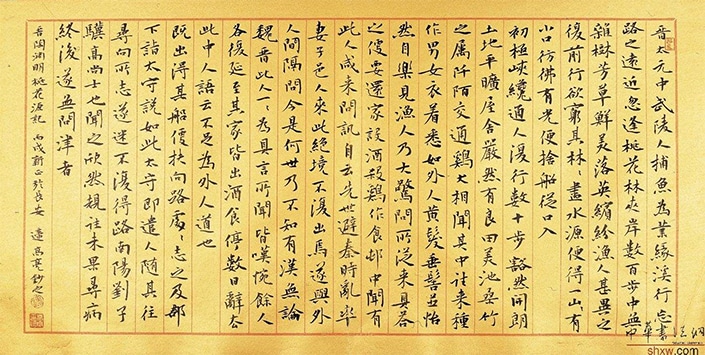 晉太元中武陵人捕魚為業緣溪行忘
路之遠近忽逢桃花林夾岸數百步中無
雜樹芳草鮮美落英繽紛漁人甚異之
復前行欲窮其林〻盡水源便得山有
小口彷彿有光便捨船從口入
初極峽纔通人復行數十步豁然開朗
土地平曠屋舍嚴然有良田美池桑竹
之屬阡陌交通鷄犬相聞其中往來種
作男女衣着悉如外人黄髮垂髫並怡
然自樂見漁人乃大驚問所從來具答
之便要還家設酒殺鷄作食邨中聞有
此人咸來問訊自云先世避秦時亂率
妻子邑人來此絕境不復出焉遂與外
人間隔問今是何世乃不知有漢無論
魏晉此人一〻為具言所聞皆嘆惋餘人
各復延至其家皆出酒食停數日辭去
此中人語云不足為外人道也
既出得其船便扶向路處〻志之及郡
下詣太守說如此太守即遣人隨其往
尋向所志遂迷不復得路南陽劉子
驥高尚士也聞之欣然規往未果尋病
終後遂無問津者
晉陶淵明桃花源記 丙戌新正於長安 高亮鈔之
shxw.com